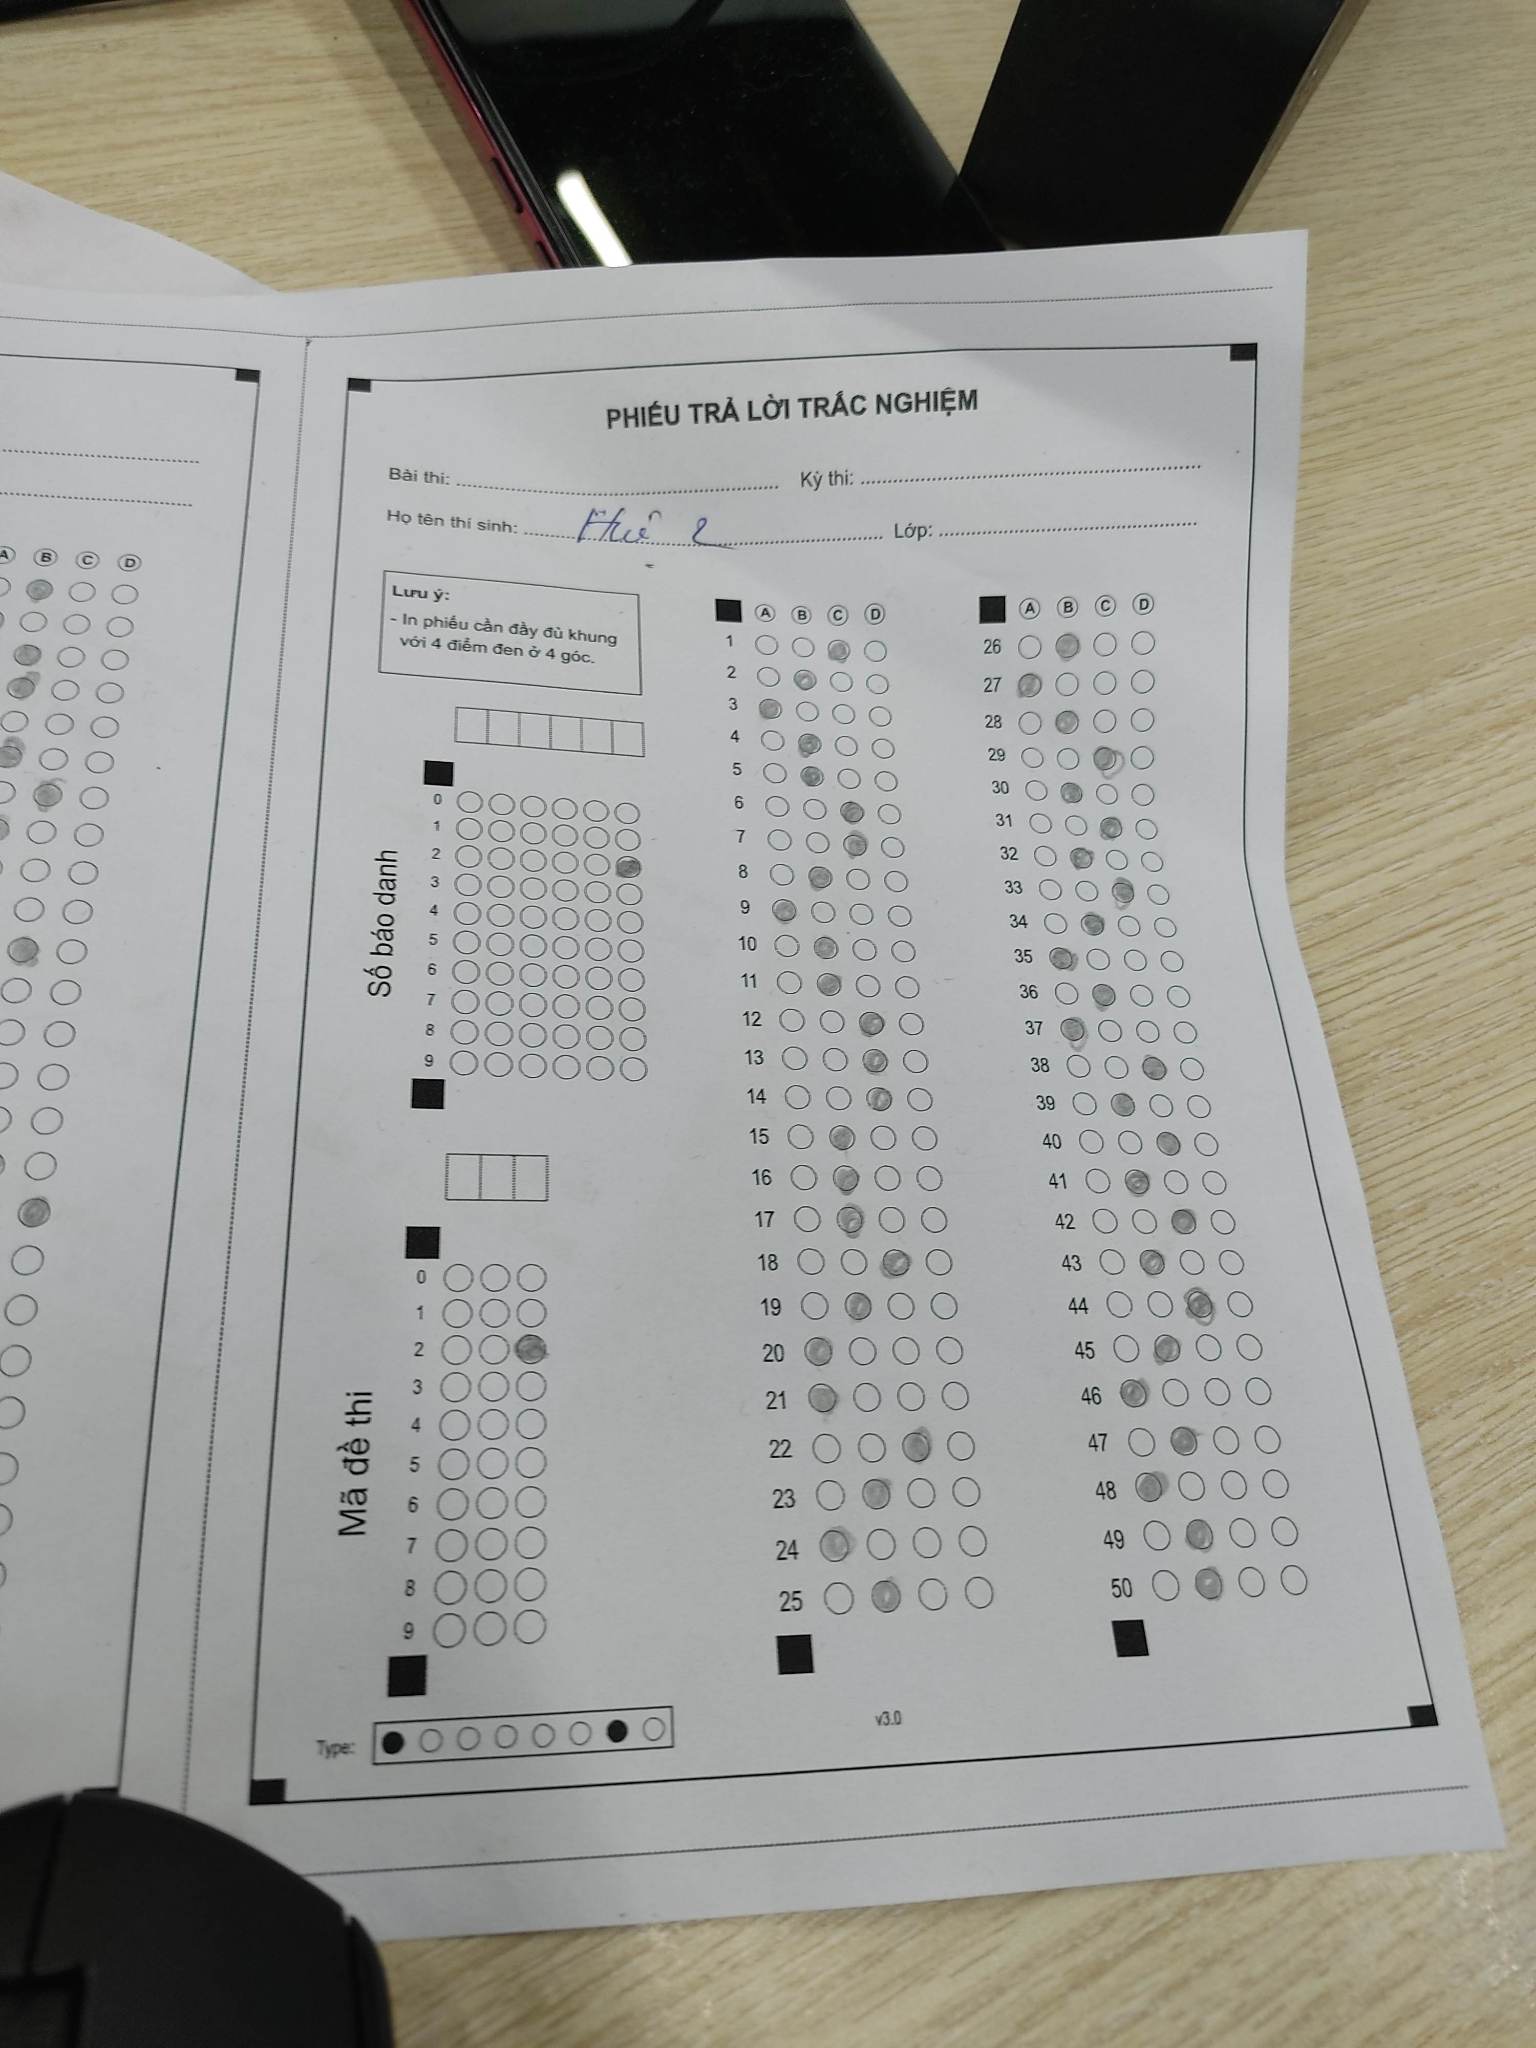 A B C D
PHIẾU TRẢ LỜI TRẮC NGHIỆM
Bài thi: Kỳ thi:
Họ tên thí sinh: Huê 2 Lớp:
Lưu ý:
- In phiếu cần đầy đủ khung
với 4 điểm đen ở 4 góc.
Số báo danh
0
1
2
3
4
5
6
7
8
9
Mã đề thi
0
1
2
3
4
5
6
7
8
9
A B C D
1
2
3
4
5
6
7
8
9
10
11
12
13
14
15
16
17
18
19
20
21
22
23
24
25
A B C D
26
27
28
29
30
31
32
33
34
35
36
37
38
39
40
41
42
43
44
45
46
47
48
49
50
Type:
v3.0